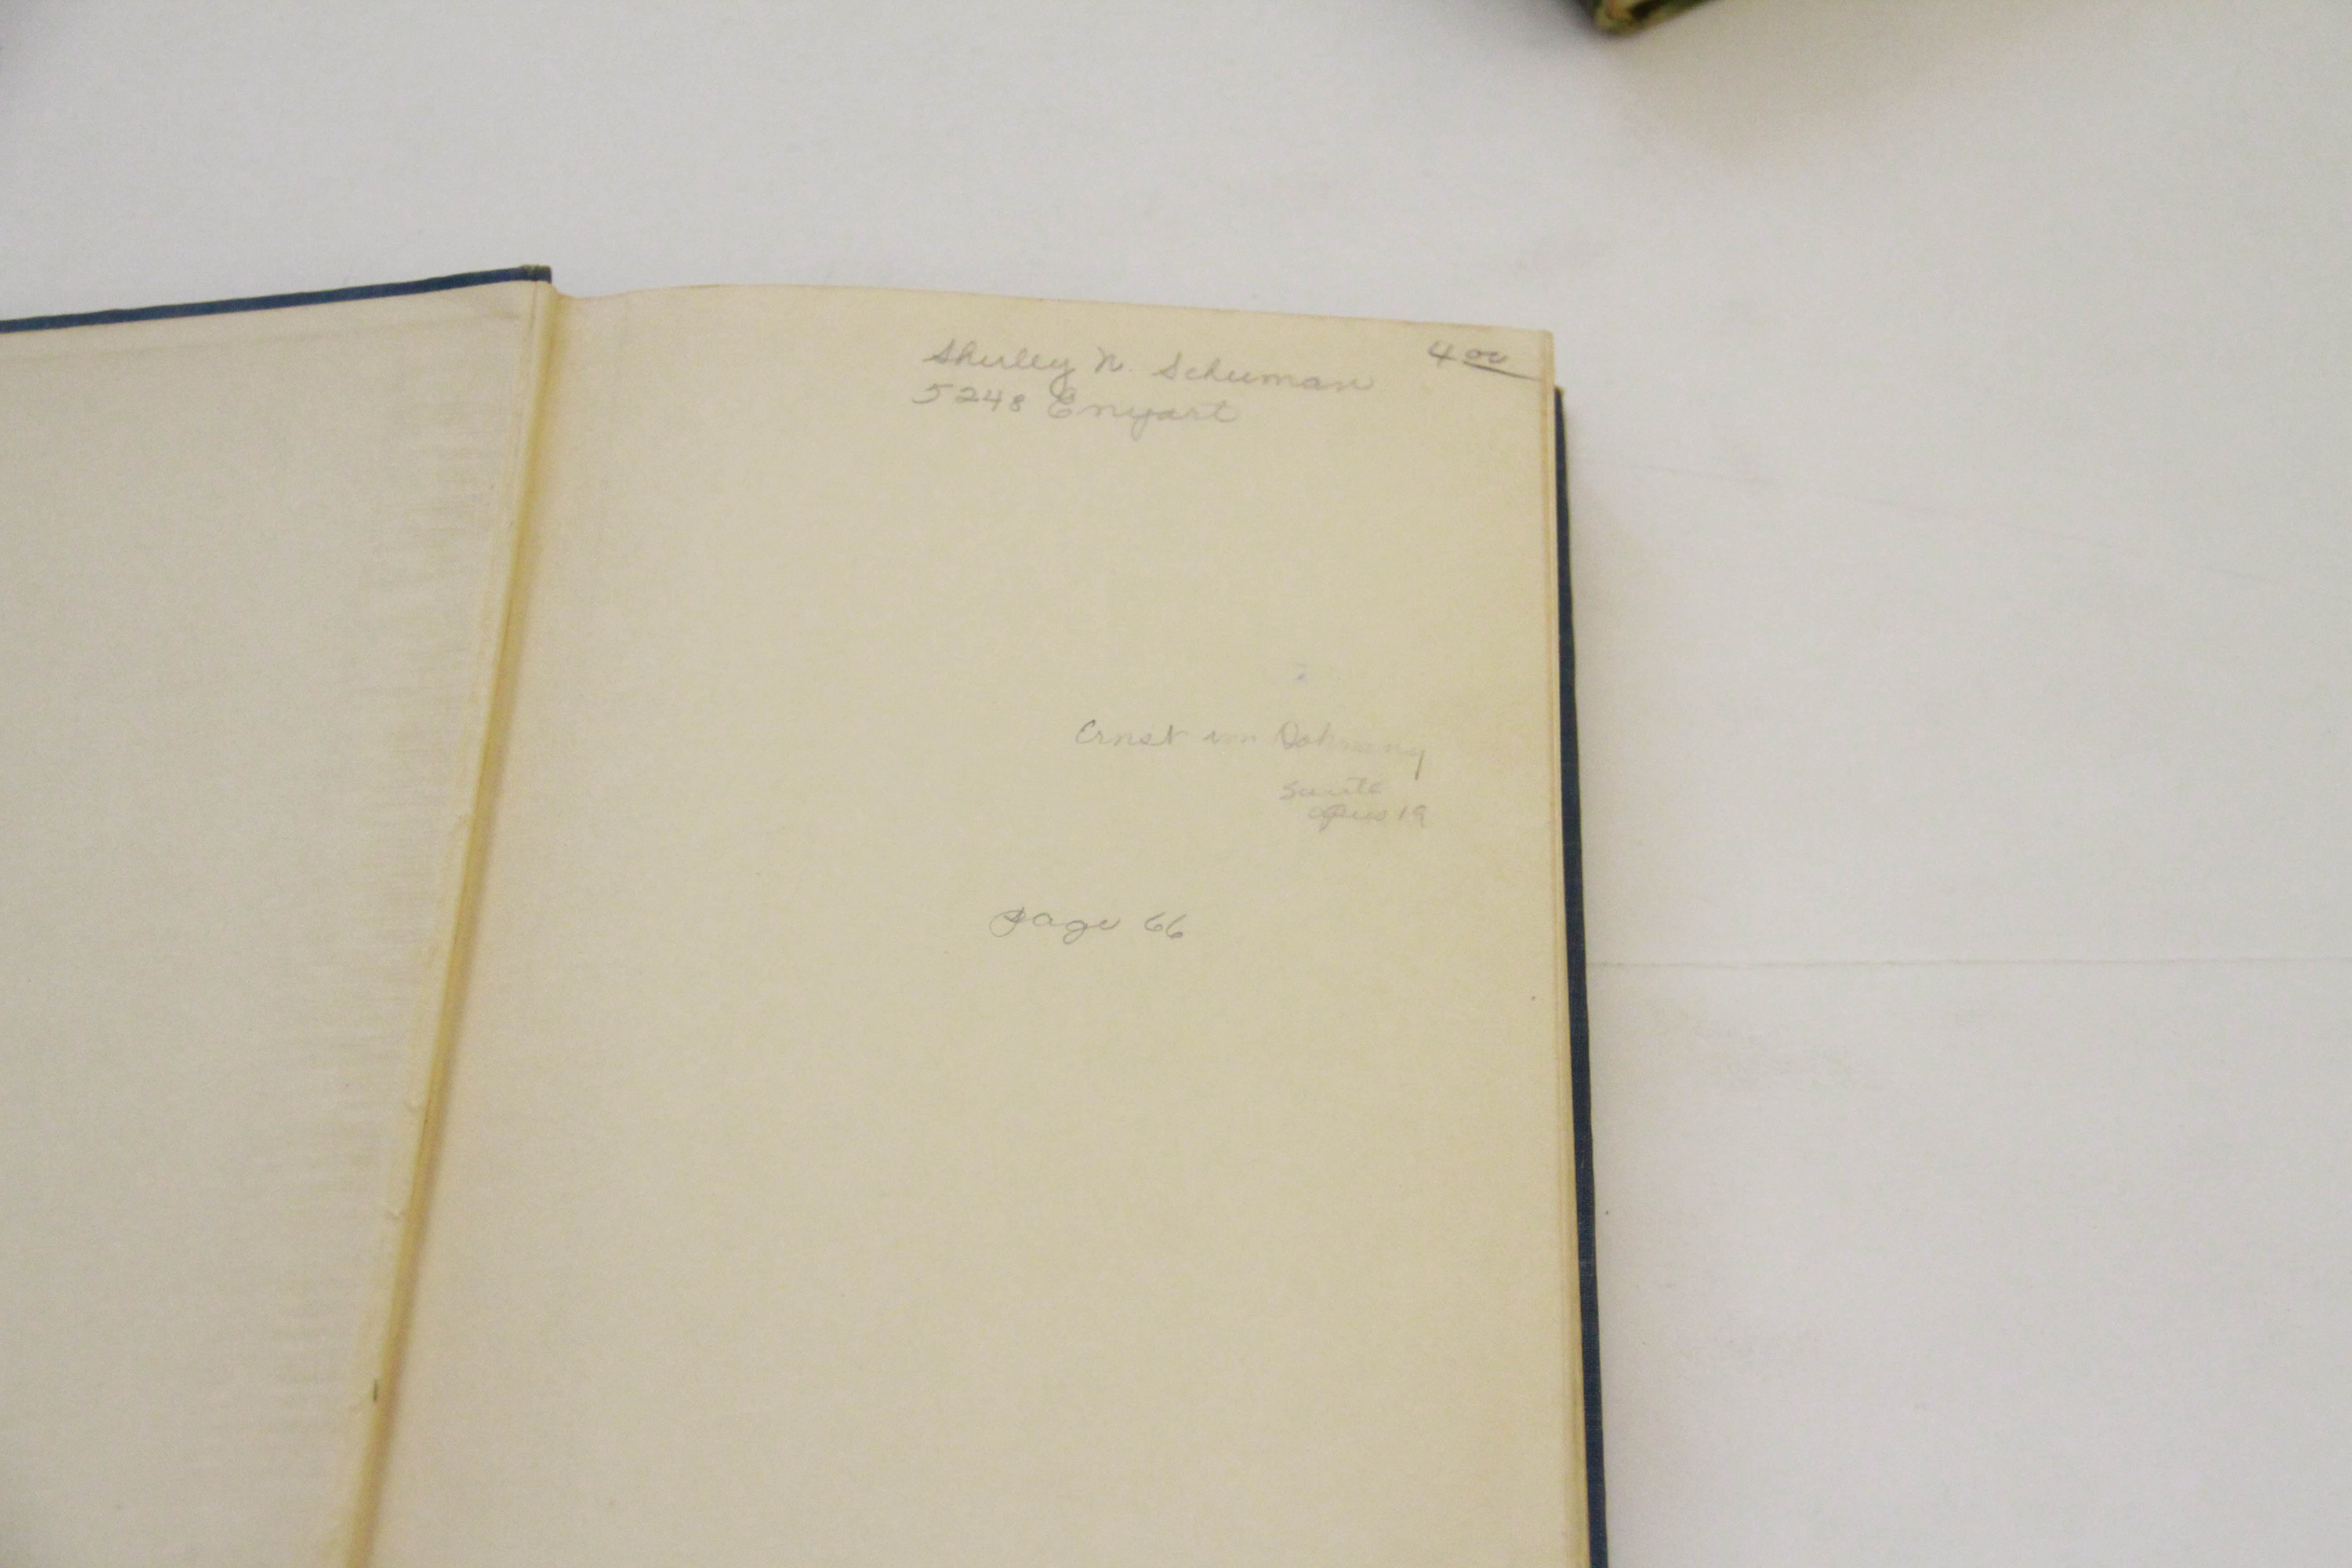 Shirley N. Schuman 4 00
5248 Enyart
Ernst von Dohnany
Suite
opus 19
page 66